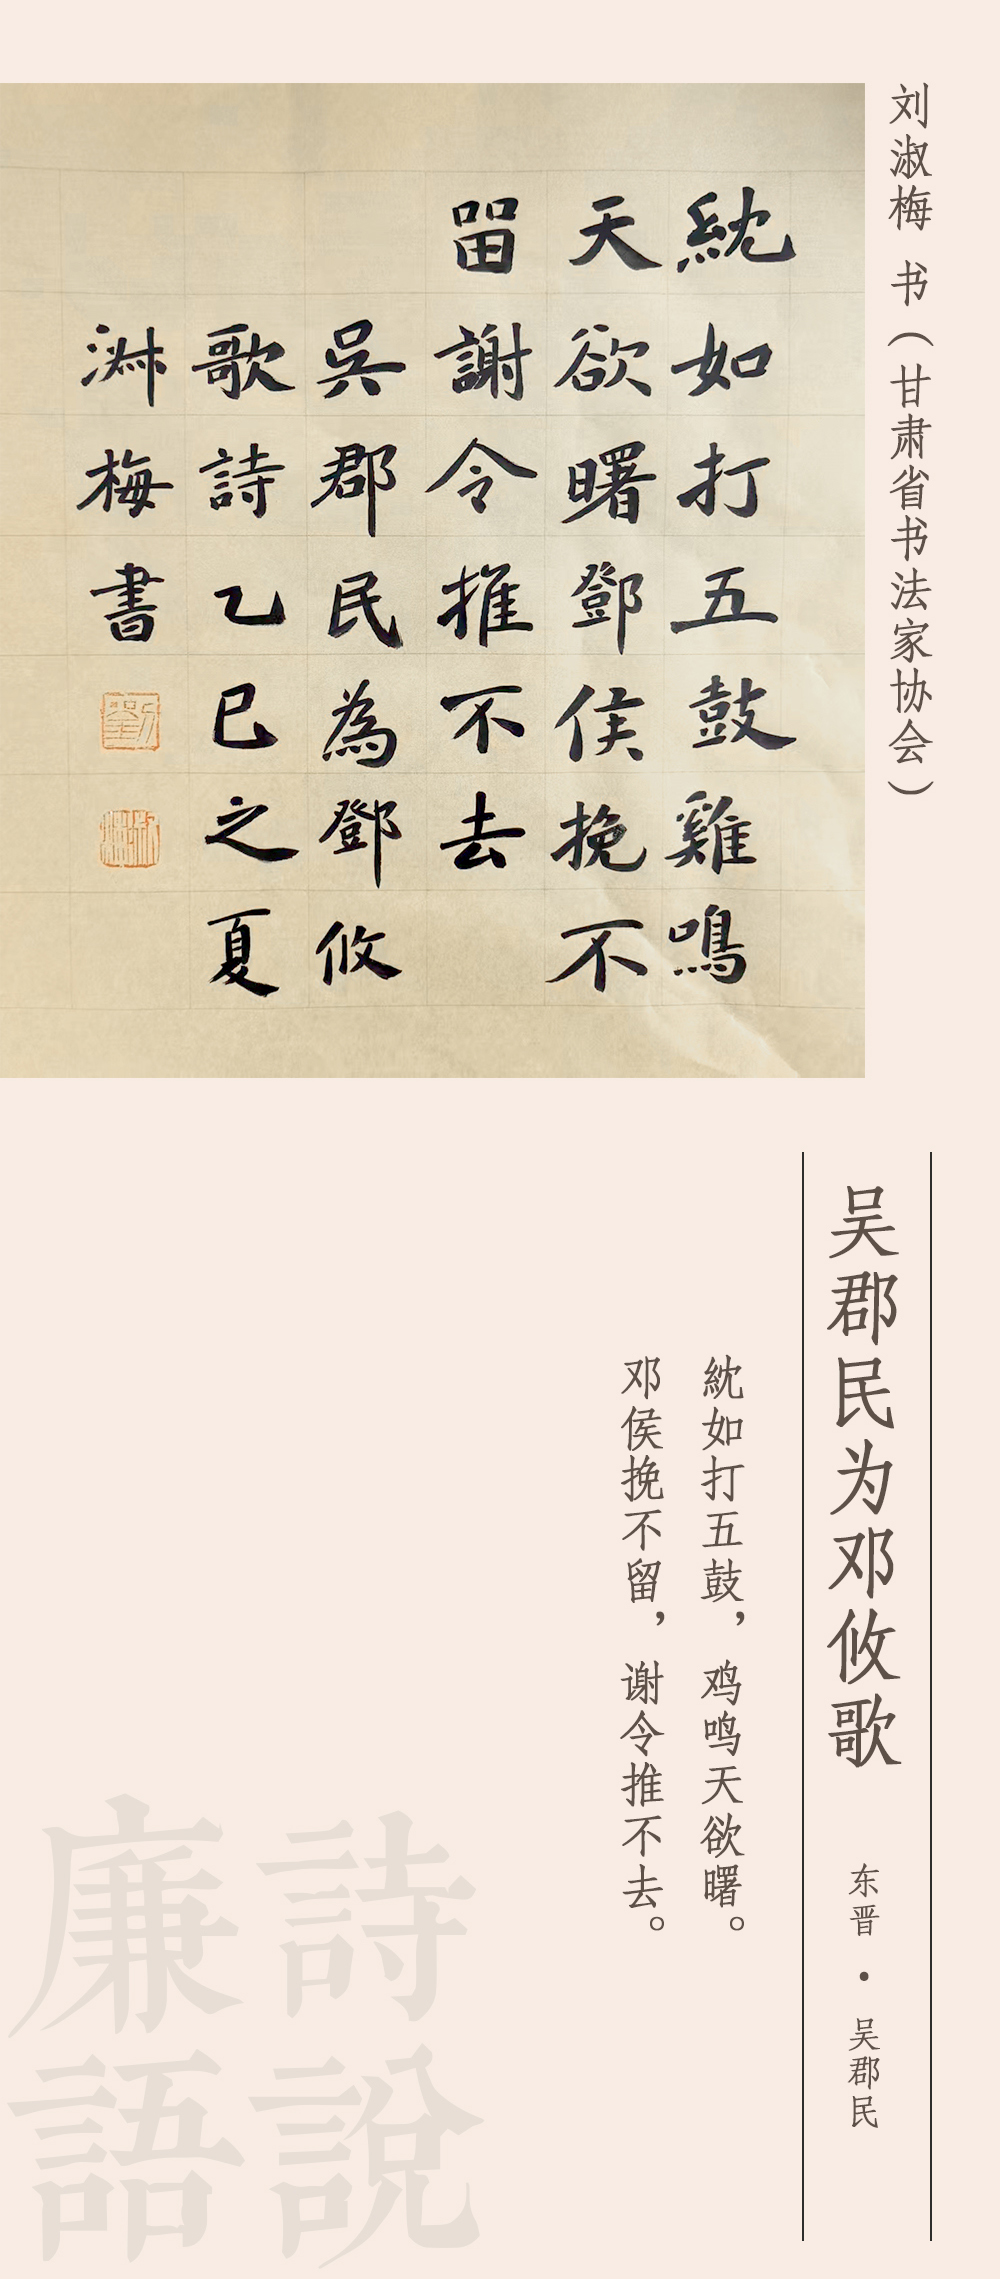 刘淑梅 书（甘肃省书法家协会）
紞如打五鼓雞鳴
天欲曙鄧侯挽不
畱謝令推不去
吳郡民為鄧攸
歌詩乙巳之夏
淋梅書
吴郡民为邓攸歌
东晋·吴郡民
紞如打五鼓，鸡鸣天欲曙。
邓侯挽不留，谢令推不去。
詩說
廉語